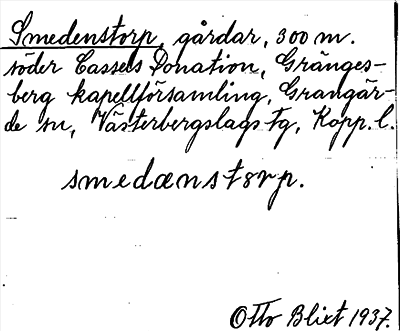 Smedenstorp, gårdar, 300 m.
söder Cassels Donation, Gränges-
berg kapellförsamling, Grangär-
de sn, Västerbergslags tg, Kopp. l.
smedænstorp.
Otto Blixt 1937.